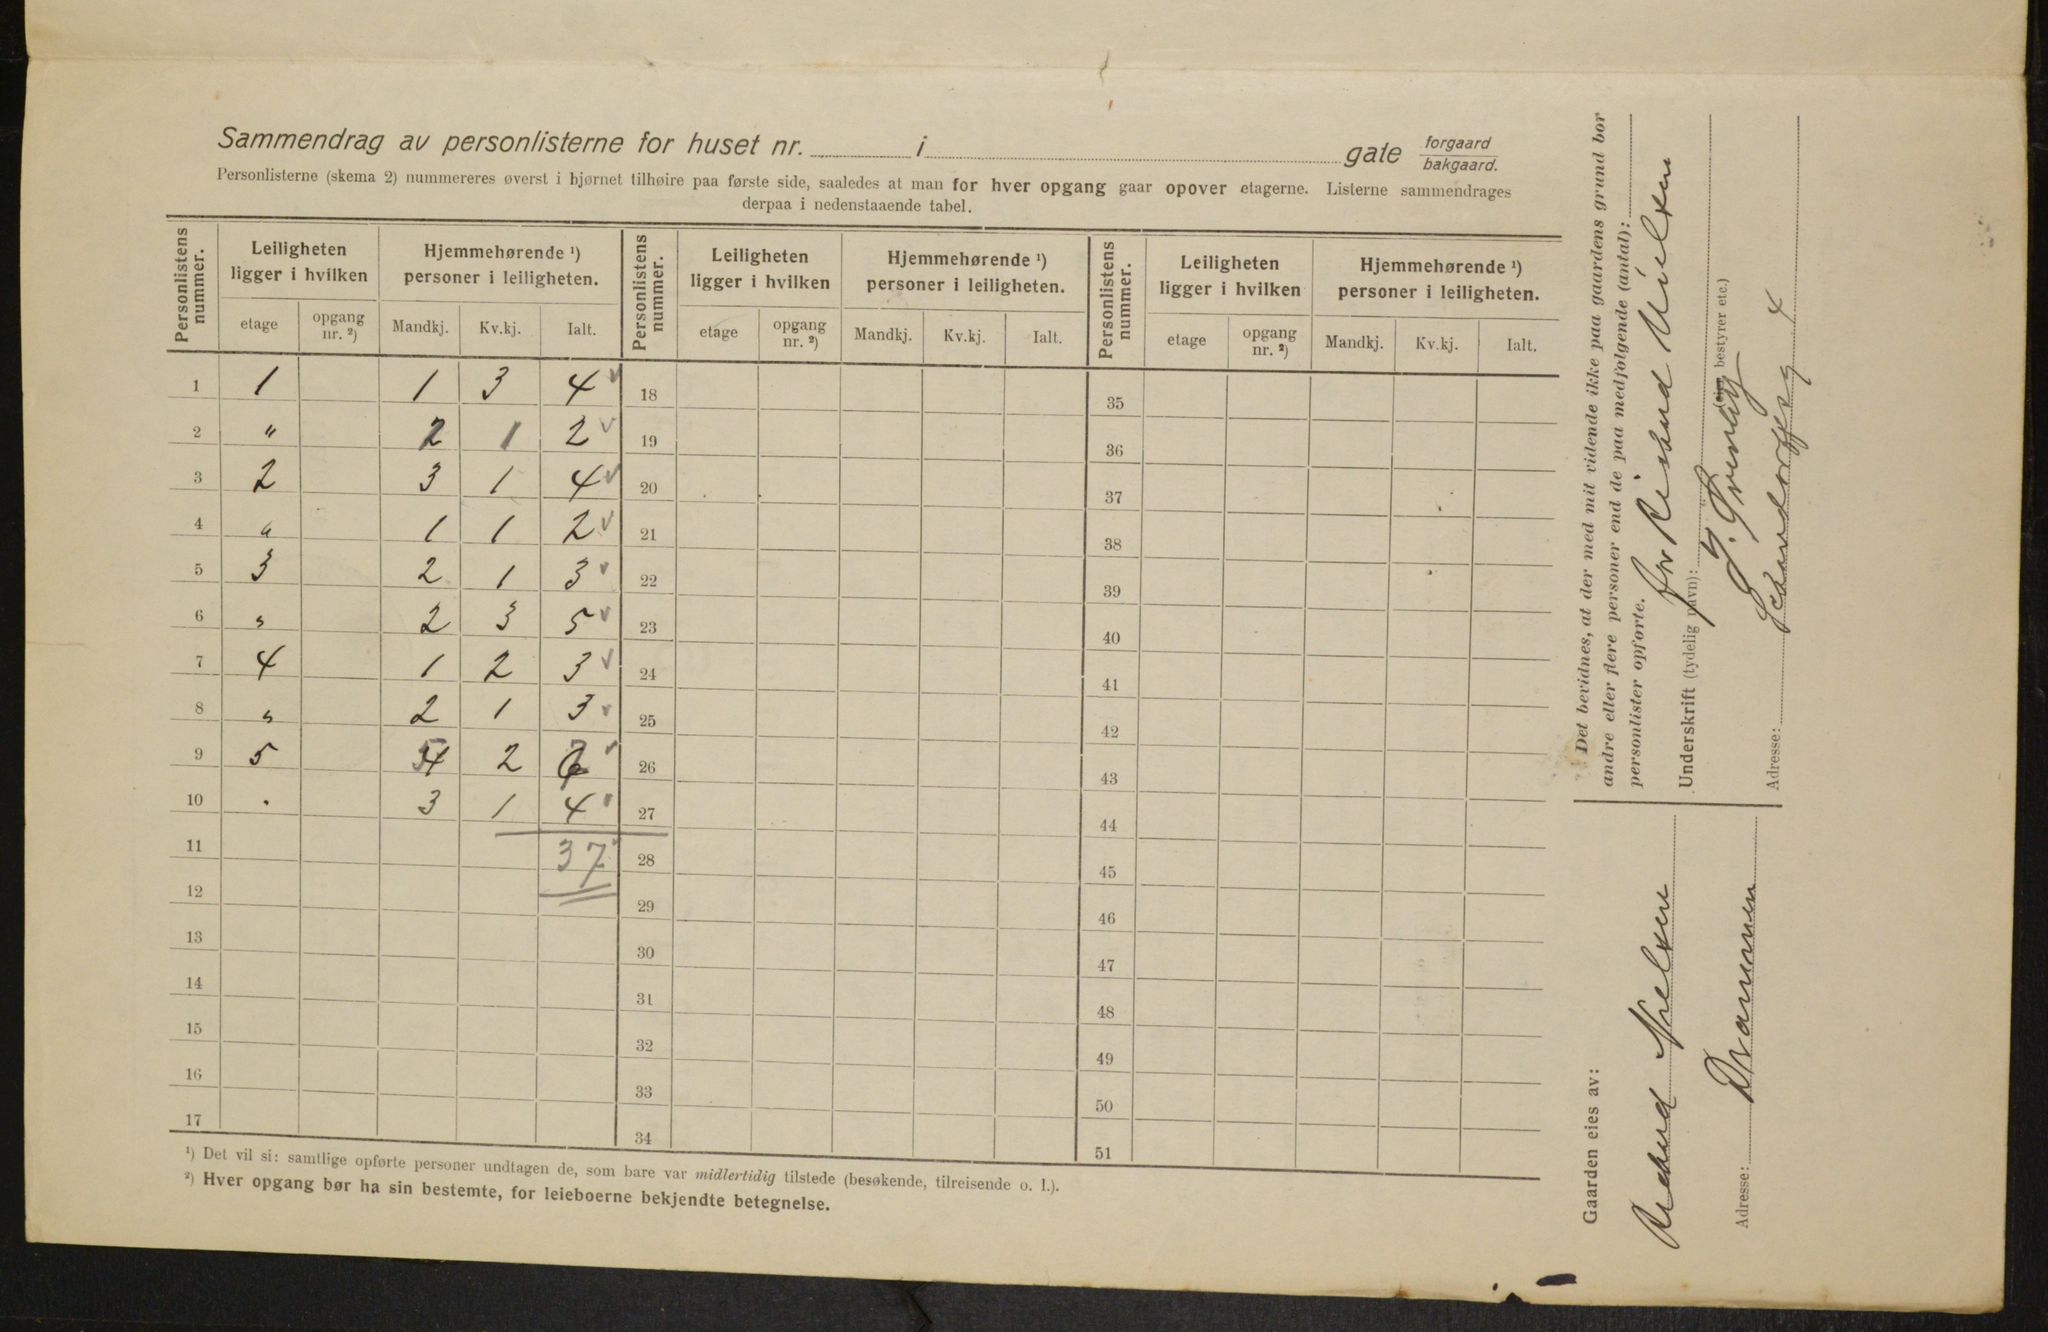 Sammendrag av personlisterne for huset nr. i gate forgaard
bakgaard.
Personlisterne (skema 2) nummereres øverst i hjørnet tilhøire paa første side, saaledes at man for hver opgang gaar opover etagerne. Listerne sammendrages
derpaa i nedenstaaende tabel.
Personlistens nummer. Leiligheten ligger i hvilken Hjemmehørende ¹) personer i leiligheten. Personlistens nummer. Leiligheten ligger i hvilken Hjemmehørende ¹) personer i leiligheten. Personlistens nummer. Leiligheten ligger i hvilken Hjemmehørende ¹) personer i leiligheten.
etage opgang nr. ²) Mandkj. Kv.kj. Ialt. etage opgang nr. ²) Mandkj. Kv.kj. Ialt. etage opgang nr. ²) Mandkj. Kv.kj. Ialt.
1 1 1 3 4 18 35
2 " 2 1 2 19 36
3 2 3 1 4 20 37
4 " 1 1 2 21 38
5 3 2 1 3 22 39
6 " 2 3 5 23 40
7 4 1 2 3 24 41
8 " 2 1 3 25 42
9 5 2 26 43
10 . 3 1 4 27 44
11 37 28 45
12 29 46
13 30 47
14 31 48
15 32 49
16 33 50
17 34 51
¹) Det vil si: samtlige opførte personer undtagen de, som bare var midlertidig tilstede (besøkende, tilreisende o. l.).
²) Hver opgang bør ha sin bestemte, for leieboerne bekjendte betegnelse.
Det bevidnes, at der med mit vidende ikke paa gaardens grund bor
andre eller flere personer end de paa medfølgende (antal):
personlister opførte. for Rikard Nielsen
Underskrift (tydelig navn): (eier, bestyrer etc.)
Adresse: 4
Gaarden eies av:
Rikard Nielsen
Adresse: Drammen